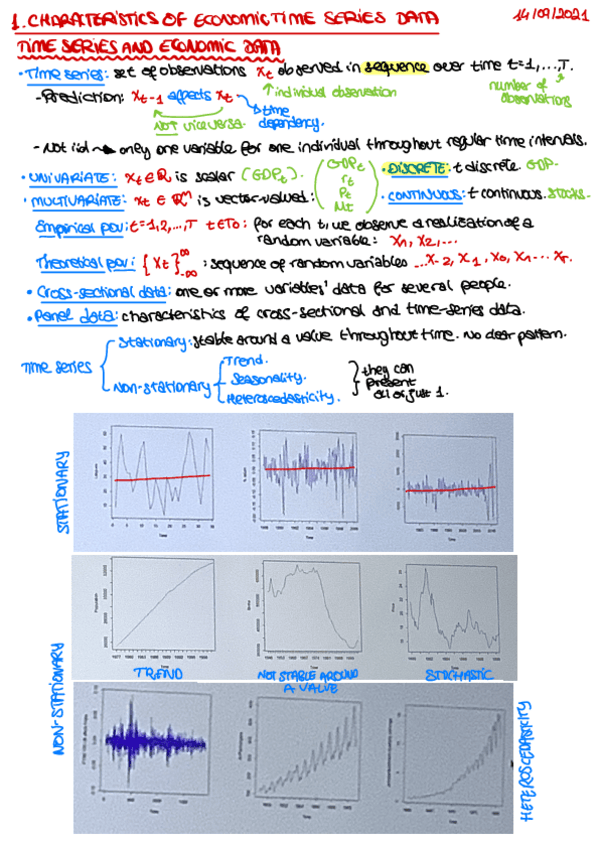 1. CHARATERISTICS OF ECONOMIC TIME SERIES DATA 14/09/2021
TIME SERIES AND ECONOMIC DATA
• Time series: set of observations xt observed in sequence over time t=1,...,T.
↑ individual observation number of observations
- Prediction: xt-1 affects xt → time dependency.
NOT viceversa.
- Not iid → only one variable for one individual throughout regular time intervals.
• UNIVARIATE: xt ∈ R is scalar (GDPt). • DISCRETE: t discrete GDP.
• MULTIVARIATE: xt ∈ R^m is vector-valued: (GDPt rt Pt Mt) • CONTINUOUS: t continuous. STOCKS.
Empirical pov: t=1,2,...,T t∈T0: for each t, we observe a realization of a
random variable: x1, x2,...
Theoretical pov: {xt}∞-∞ : sequence of random variables ...x-2, x-1, x0, x1... xT.
• Cross-sectional data: one or more variables' data for several people.
• Panel data: characteristics of cross-sectional and time-series data.
TIME SERIES
Stationary: stable around a value throughout time. No clear pattern.
Non-stationary
Trend.
Seasonality.
Heteroscedasticity.
they can
present
all or just 1.
STATIONARY
NON-STATIONARY
TREND
NOT STABLE AROUND
A VALUE
STOCHASTIC
HETEROSCEDASTICITY